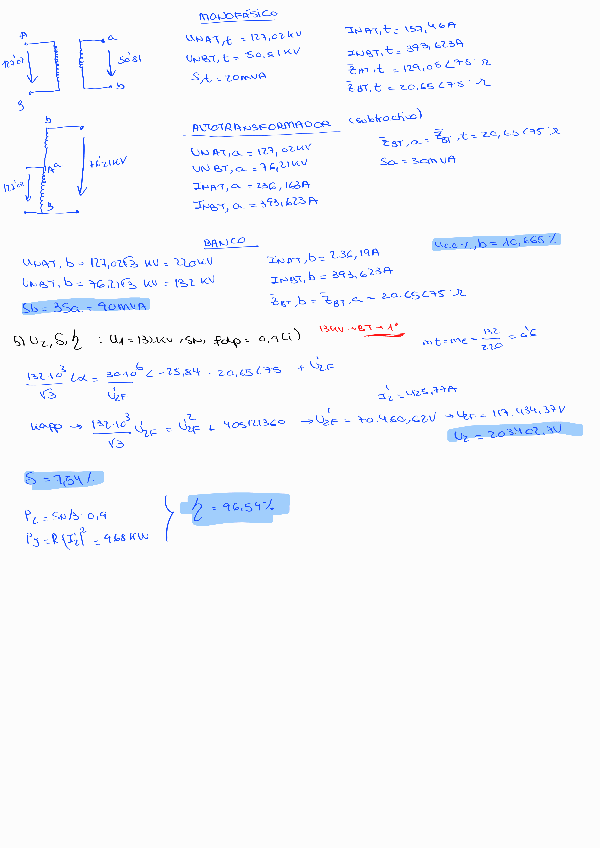 MONOFÁSICO
A a
127'02 50'81
b
B
UNAT,t = 127,02KV
UNBT,t = 50.81KV
S,t = 20MVA
INAT,t = 157,46A
INBT,t = 393,623A
Z̄AT,t = 129,05∠75 Ω
Z̄BT,t = 20.65∠75 Ω
AUTOTRANSFORMADOR (subtractivo)
b
a
A
76'21KV
127'02
B
UNAT,a = 127,02KV
UNBT,a = 76,21KV
INAT,a = 236,163A
INBT,a = 393,623A
Z̄BT,a = Z̄BT,t = 20,65∠75 Ω
Sa = 30MVA
BANCO
UNAT,b = 127,02√3 KV = 220KV
UNBT,b = 76,21√3 KV = 132 KV
Sb = 3Sa = 90MVA
INAT,b = 236,19A
INBT,b = 393,623A
Z̄BT,b = Z̄BT,a = 20.65∠75 Ω
Ucc%,b = 10,665%
5) U2, δ, η : U1 = 132KV, SN, fdp = 0,9(i)
BT → 1º
mt = me = 132/220 = 0'6
132·10³/√3 ∠α = 30·10⁶/U'2F ∠-25,84 · 20,65∠75 + U'2F
I'2 = 425,77A
Kapp → 132·10³/√3 U'2F = U'2F² + 405121360 → U'2F = 70.460,62V → U2F = 117.434,37V
U2 = 203402,3V
δ = 7,54%
P2 = SN/3·0,9
PJ = R(I'2)² = 968KW
η = 96,54%